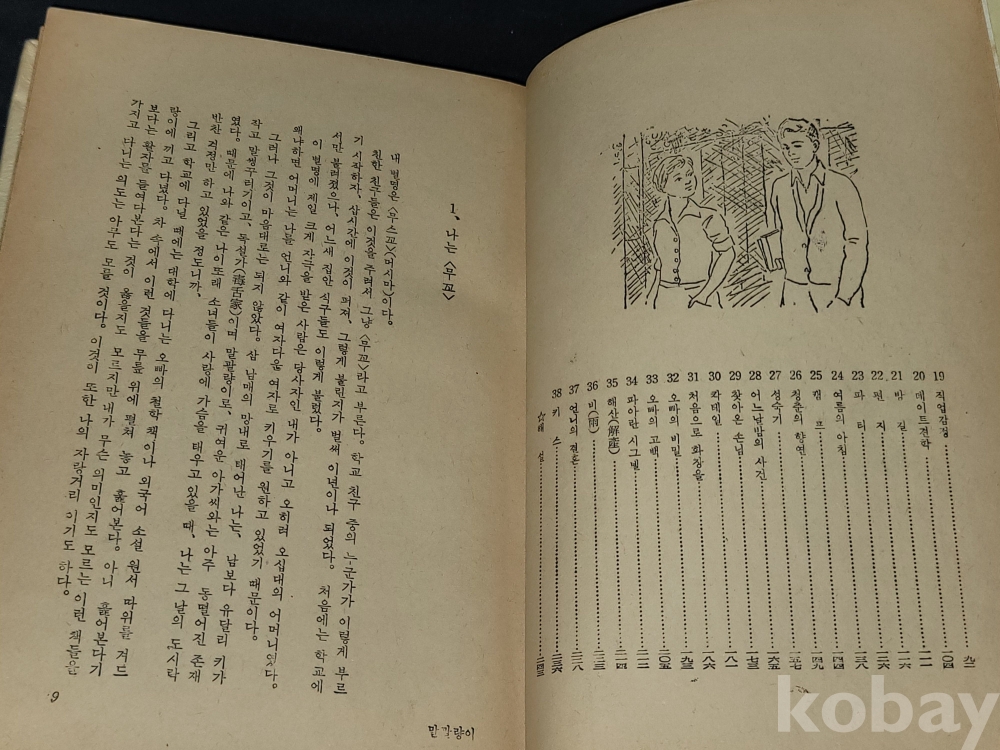 19 직업감정 九二
20 데이트견학 一〇四
21 방 길 一一一
22 편 지 一一六
23 파 티 一二六
24 여름의 아침 一三八
25 캠 프 一四四
26 청춘의 향연 一四九
27 성숙기 一五七
28 어느날밤의 사건 一六五
29 찾아온 손님 一七三
30 칵테일 一八一
31 처음으로 화장을 一八六
32 오빠의 비밀 一九三
33 오빠의 고백 二〇五
34 파아란 시그널 二一二
35 해산(解産) 二一四
36 비(雨) 二二三
37 언니의 결혼 二二八
38 키 스 二三六
☆해 설 二四三
1、나는 〈무꾜〉
내 별명은 〈우스꾜〉(머시마)이다。
친한 친구들은 이것을 주려서 그냥 〈무꾜〉라고 부른다。 학교 친구 중의 누군가가 이렇게 부르
기 시작하자、 삽시간에 이것이 퍼져、 그렇게 불린지가 벌써 이년이나 되었다。 처음에는 학교에
서만 불려졌으나、 어느새 집안 식구들도 이렇게 불렀다。
이 별명에 제일 크게 자극을 받은 사람은 당사자인 내가 아니고 오히려 오십대의 어머니였다。
왜냐하면 어머니는 나를 언니와 같이 여자다운 여자로 키우기를 원하고 있었기 때문이다。
그러나 그것이 마음대로는 되지 않았다。 삼 남매의 망내로 태어난 나는、 남보다 유달리 키가
작고 말썽꾸러기이고、 독설가(毒舌家)이며 말괄량이로、 귀여운 아가씨와는 아주 동떨어진 존재
였다。 때문에 나와 같은 나이또래 소녀들이 사랑에 가슴을 태우고 있을 때、 나는 그날의 도시락
반찬 걱정만 하고 있었을 정도니까、
그리고 학교에 다닐 때에는 대학에 다니는 오빠의 철학책이나 외국어 소설 원서 따위를 겨드
랑이에 끼고 다녔다。 차 속에서 이런 것들을 무릎 위에 펼쳐 놓고 훑어본다。 아니 훑어본다기
보다는 활자를 들여다본다는 것이 옳을지도 모르지만 내가 무슨 의미인지도 모르는 이런 책들을
가지고 다니는 의도는 아무도 모를 것이다。 이것이 또한 나의 자랑거리이기도 하다。
9
말괄량이
kobay